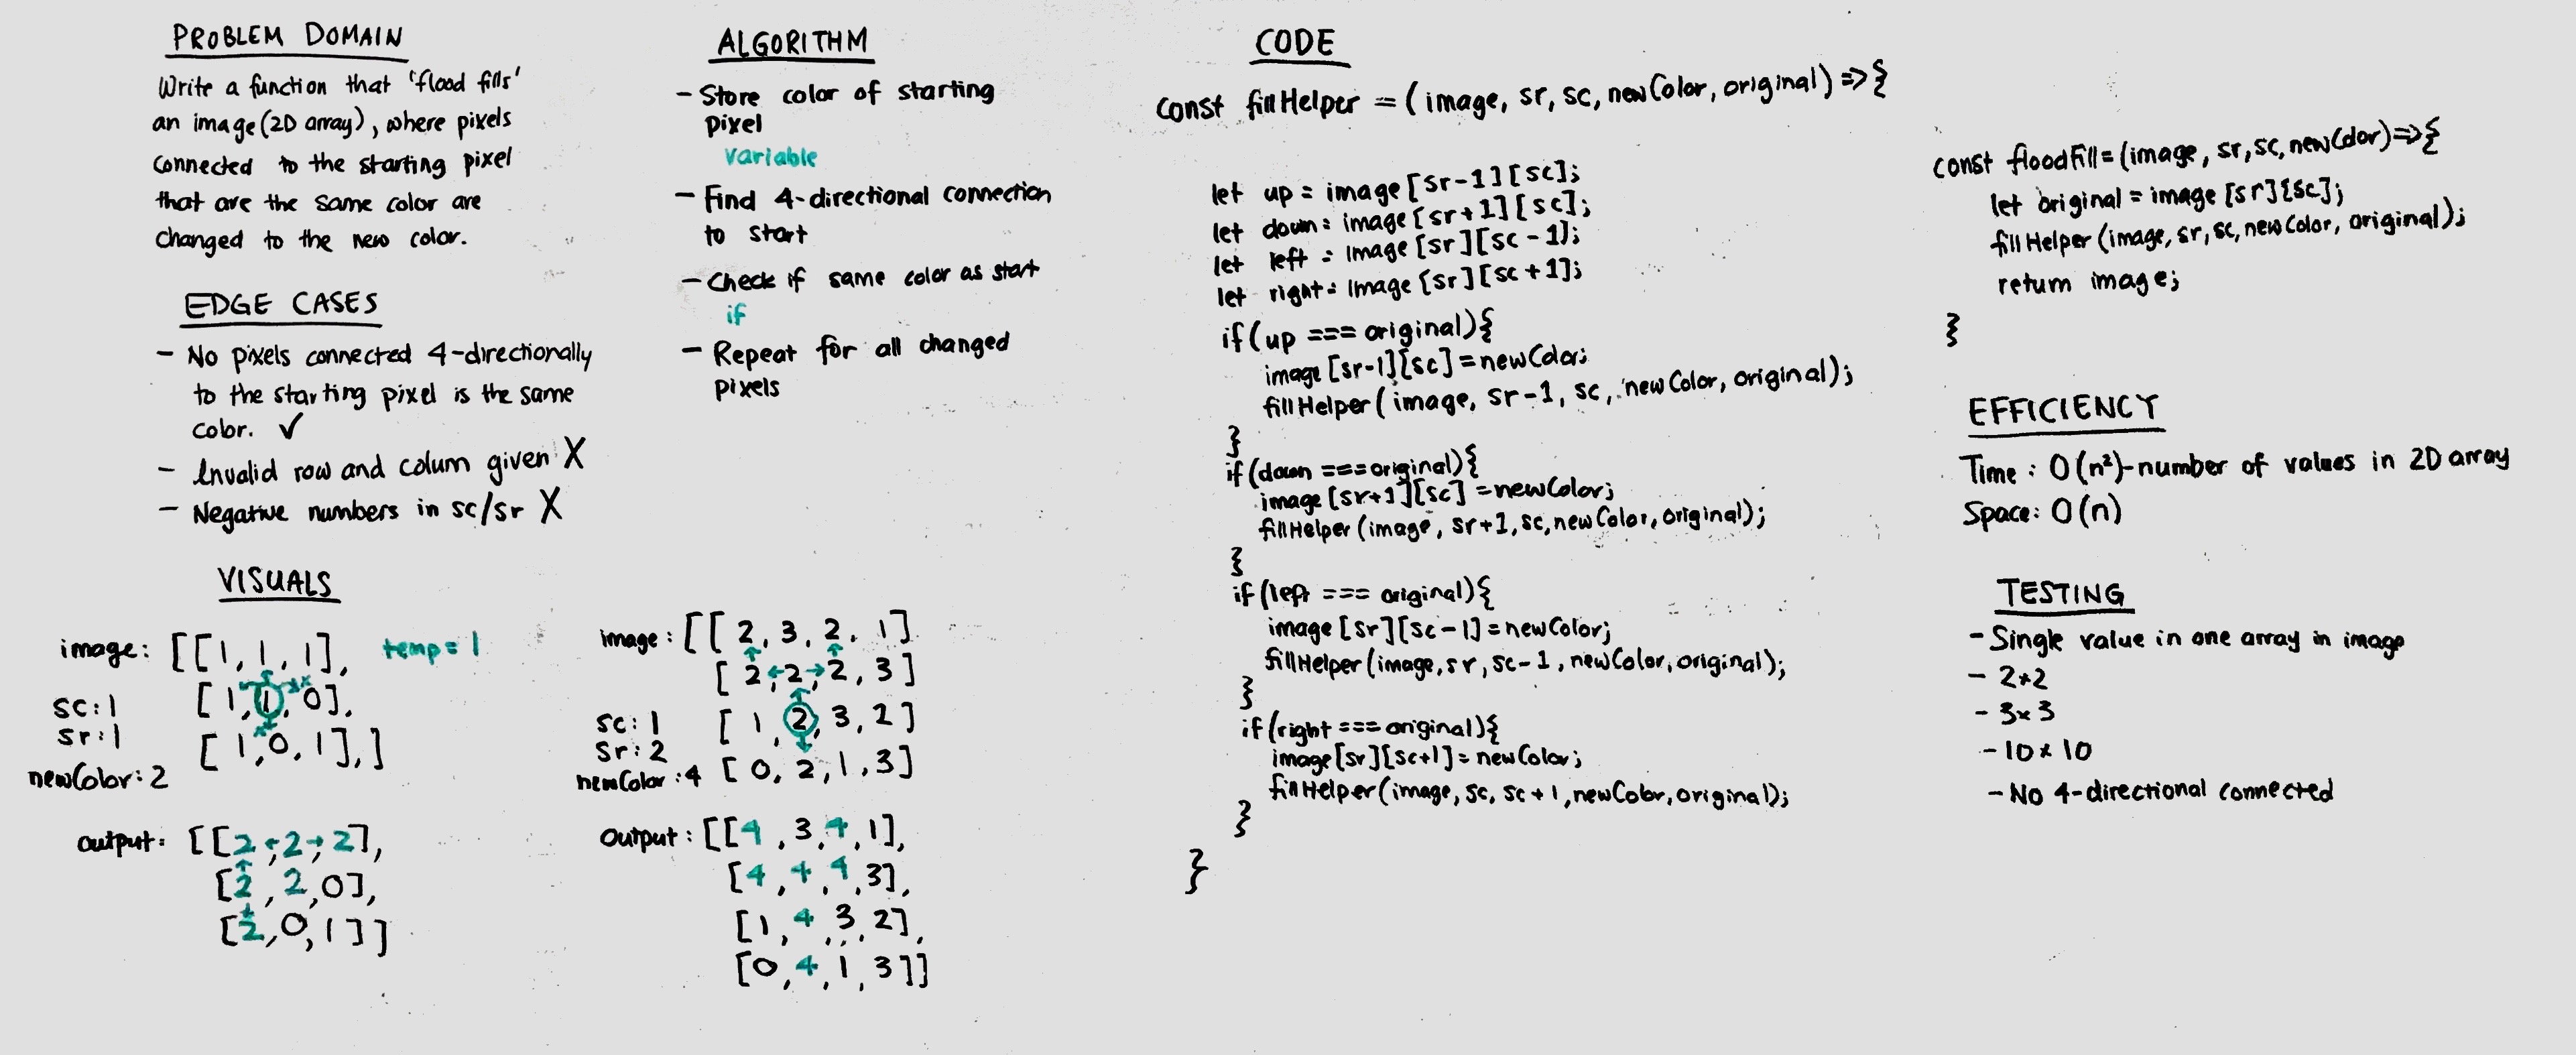 PROBLEM DOMAIN
Write a function that 'flood fills'
an image (2D array), where pixels
connected to the starting pixel
that are the same color are
changed to the new color.
EDGE CASES
- No pixels connected 4-directionally
to the starting pixel is the same
color. ✓
- Invalid row and colum given X
- Negative numbers in sc/sr X
VISUALS
image: [[1, 1, 1],
temp = 1
[1, 1, 0],
[1, 0, 1],]
sc: 1
sr: 1
newColor: 2
output: [[2, 2, 2],
[2, 2, 0],
[2, 0, 1]]
ALGORITHM
- Store color of starting
pixel
variable
- Find 4-directional connection
to start
- Check if same color as start
if
- Repeat for all changed
pixels
image: [[2, 3, 2, 1]
[2, 2, 2, 3]
[1, 2, 3, 2]
[0, 2, 1, 3]
sc: 1
sr: 2
newColor: 4
output: [[4, 3, 4, 1],
[4, 4, 4, 3],
[1, 4, 3, 2],
[0, 4, 1, 3]]
CODE
const fillHelper = (image, sr, sc, newColor, original) => {
let up = image[sr-1][sc];
let down = image[sr+1][sc];
let left = image[sr][sc-1];
let right = image[sr][sc+1];
if(up === original){
image[sr-1][sc] = newColor;
fillHelper(image, sr-1, sc, newColor, original);
}
if(down === original){
image[sr+1][sc] = newColor;
fillHelper(image, sr+1, sc, newColor, original);
}
if(left === original){
image[sr][sc-1] = newColor;
fillHelper(image, sr, sc-1, newColor, original);
}
if(right === original){
image[sr][sc+1] = newColor;
fillHelper(image, sc, sc+1, newColor, original);
}
}
const floodFill = (image, sr, sc, newColor) => {
let original = image[sr][sc];
fillHelper(image, sr, sc, newColor, original);
return image;
}
EFFICIENCY
Time: O(n²)-number of values in 2D array
Space: O(n)
TESTING
- Single value in one array in image
- 2×2
- 3×3
- 10×10
- No 4-directional connected